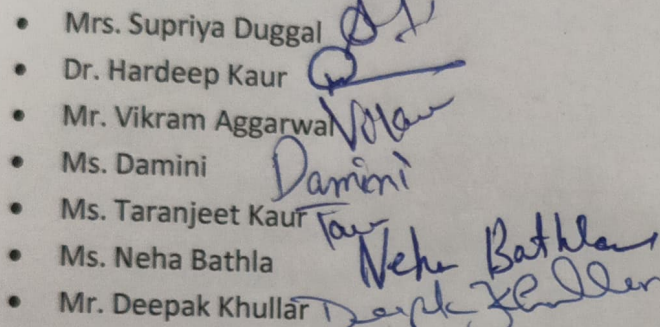 • Mrs. Supriya Duggal
• Dr. Hardeep Kaur
• Mr. Vikram Aggarwal
• Ms. Damini Damini
• Ms. Taranjeet Kaur
• Ms. Neha Bathla Neha Bathla
• Mr. Deepak Khullar Deepak Khullar